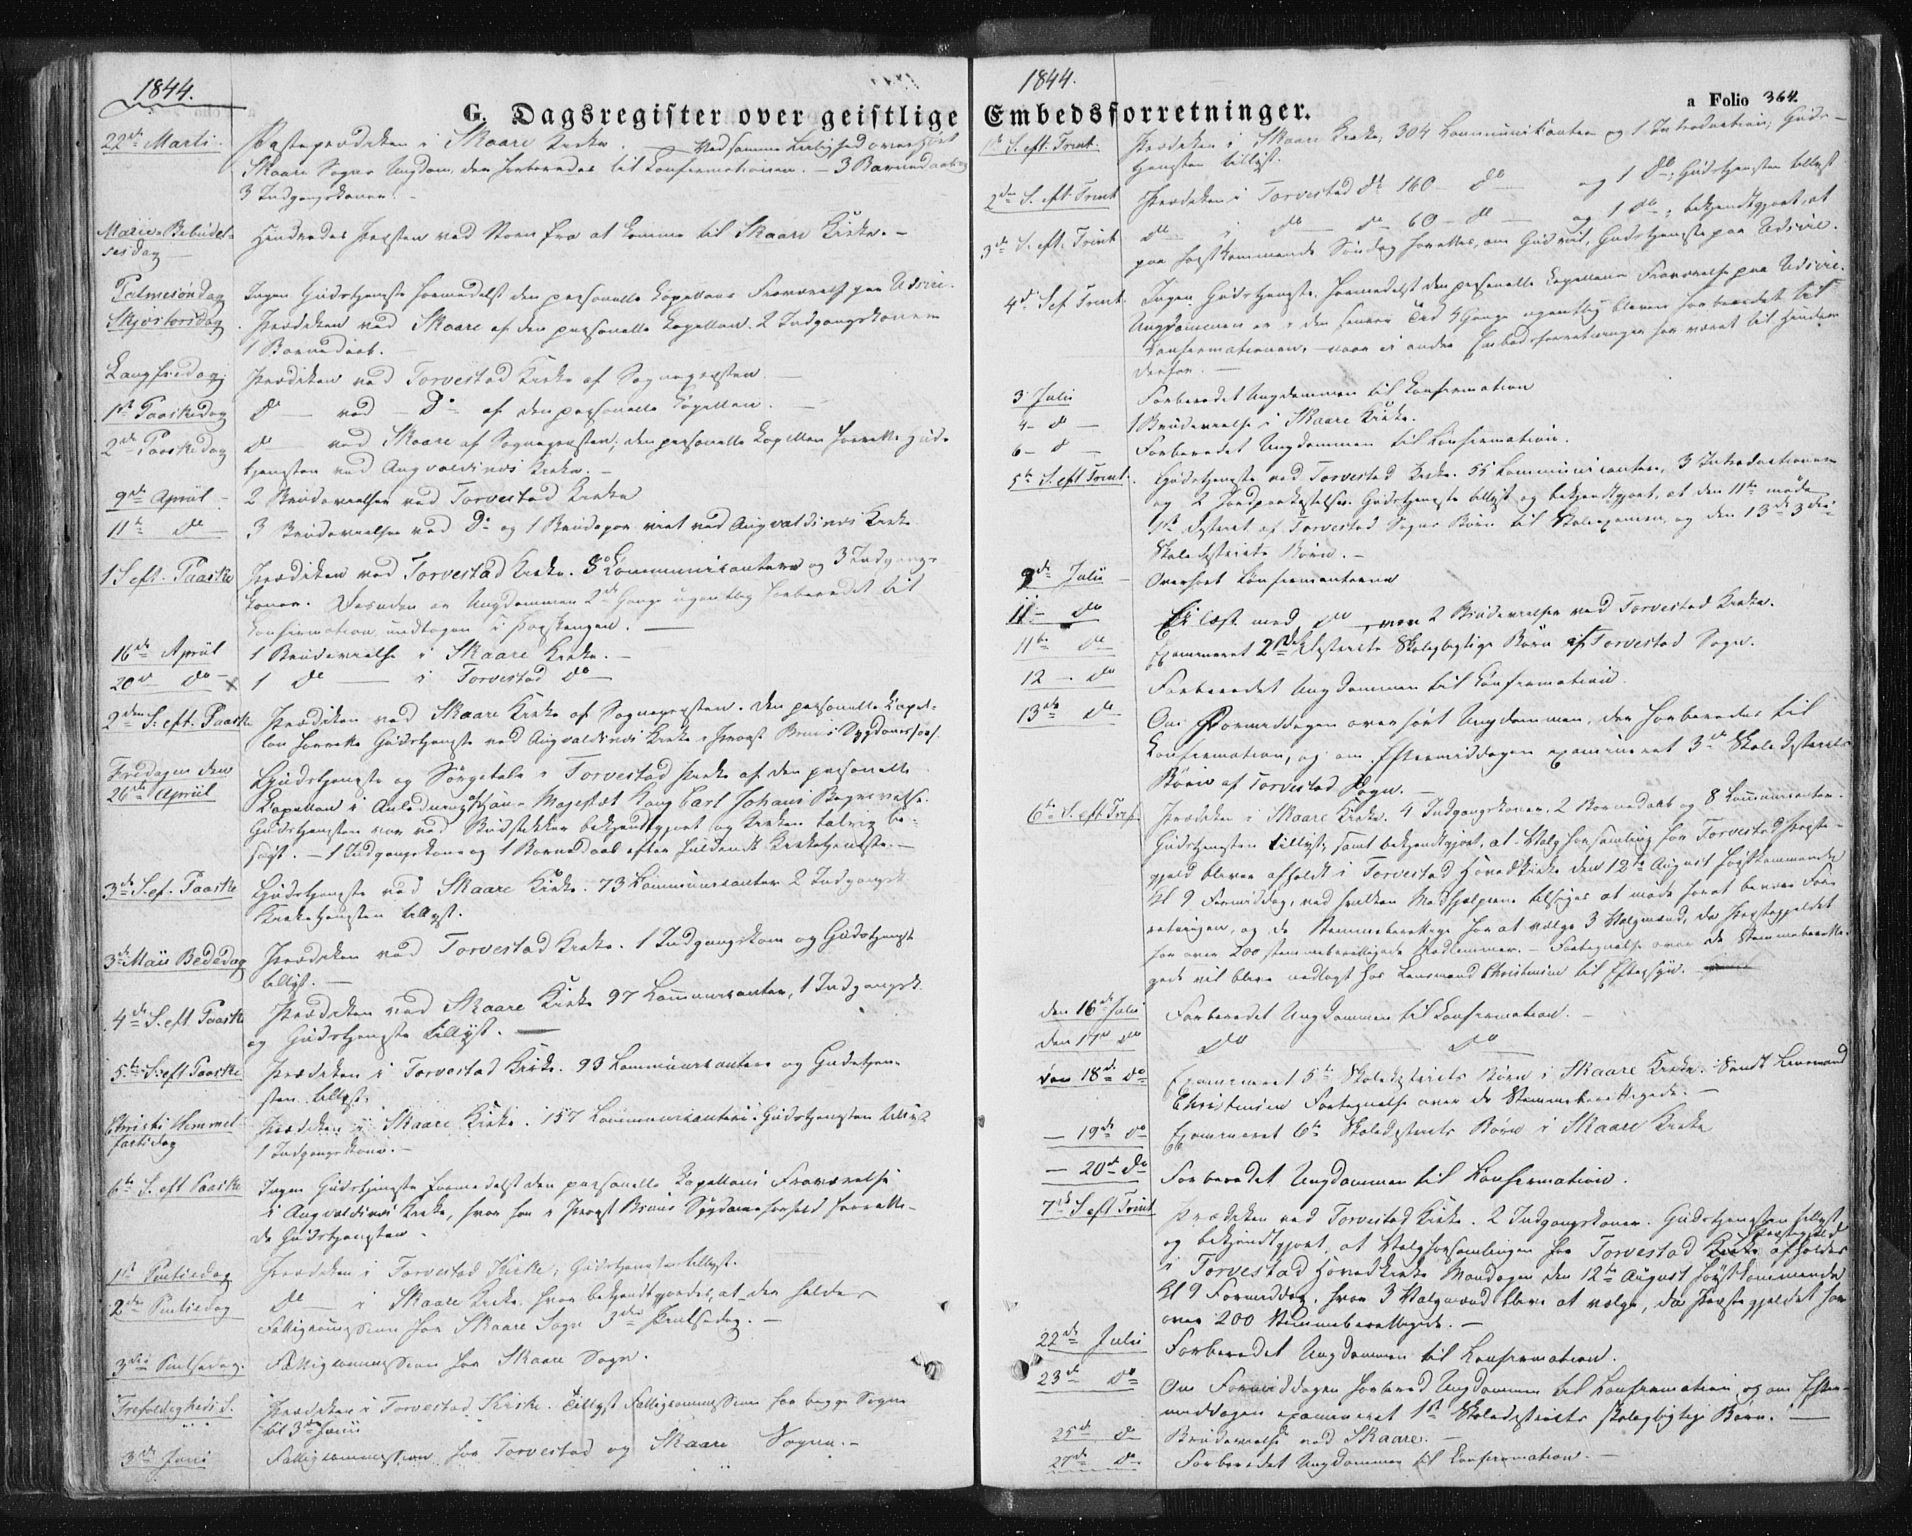 1844.
G. Dagsregister over geistlige
22de Marti. Fasteprædiken i Skaare Kirke. — Ved samme Leilighed overhørt
Skaare Sogns Ungdom, der forberedes til Confirmationen. — 3 Barnedaab og
3 Indgangskoner. —
Mariæ Bebudel-
sesdag Hindredes Præsten ved Storm fra at komme til Skaare Kirke. —
Palmesøndag Ingen Gudstjeneste formedelst den personelle Capellans Fraværelse paa Udsire.
Skjærtorsdag Prædiken ved Skaare af den personelle Capellan. 2 Indgangskoner
1 Barnedaab. —
Langfredag Prædiken ved Torvestad Kirke af Sognepræsten. —
1ste Paaskedag do — ved — Do af den personelle Capellan. —
2de Paaskedag do — ved Skaare af Sognepræsten; den personelle Capellan forrettede Guds-
tjenesten ved Augvaldsnæs Kirke. —
9de Apriil 2 Brudevielser ved Torvestad Kirke
11te do 3 Brudevielser ved Do og 1 Brudepar viet ved Augvaldsnæs Kirke
1 S. eft. Paaske Prædiken ved Torvestad Kirke. Communicantere og 3 Indgangs-
koner. Desuden er Ungdommen 2de Gange ugentlig forberedet til
Confirmation undtagen i Paaskeugen. —
16de Apriil 1 Brudevielse i Skaare Kirke. —
20de do — x 1 do — i Torvestad do
2den S. eft. Paaske Prædiken ved Skaare Kirke af Sognepræsten. Den personelle Capel-
lan forrettede Gudstjeneste ved Augvaldsnæs Kirke i Provst Bruns Sygdomsforf.
Fredagen den
26de Apriil Gudstjeneste og Sørgetale i Torvestad Kirke af den personelle
Capellan i Anledning af Hans Majestæt Kong Carl Johans Begravelse.
Gudstjenesten var ved Budstikker bekjendtgjort og Kirken talrig be-
søgt. — 1 Indgangskone og 1 Barnedaab efter fuldendt Kirketjeneste. —
3de S. ef. Paaske Gudstjeneste ved Skaare Kirke. 73 Communicanter 2 Indgangsk.
Kirketjenesten tillyst.
3de Maii Bededag Prædiken ved Torvestad Kirke. 1 Indgangskone og Gudstjeneste
tillyst. —
4de S. eft Paaske Prædiken ved Skaare Kirke 97 Communicanter, 1 Indgangsk.
og Gudstjeneste tillyst. —
5te S. eft Paaske Prædiken i Torvestad Kirke. 93 Communicantere og Gudstjene-
sten tillyst.
Christi Himmel-
fartsdag Prædiken i Skaare Kirke. 157 Communicanter. Gudstjenesten tillyst
1 Indgangskone. —
6te S. eft Paaske Ingen Gudstjeneste formedelst den personelle Capellans Fraværelse
i Augvaldsnæs Kirke, hvor han i Provst Bruns Sygdomsforfald forrette-
de Gudstjenesten. —
1ste Pintsedag Prædiken i Torvestad Kirke; Gudstjenesten tillyst.
2den Pintsedag do — i Skaare Kirke hvor bekjendtgjordes, at der holdes
Fattigcommission for Skaare Sogn 3die Pintsedag. —
3die Pintsedag. Fattigcommission for Skaare Sogn.
Trefoldigheds S. Prædiken i Torvestad Kirke. Tillyst Fattigcommission for begge Sogne
til 3die Junii
3die Junii Fattigcommission for Torvestad og Skaare Sogne. —
1844.
Embedsforretninger.
a Folio 364.
1ste S. eft. Trint. Prædiken i Skaare Kirke, 304 Communicanter og 1 Introduction; Guds-
tjenesten tillyst.
2den S. eft Trint Prædiken i Torvestad do 160 — do — og 1 do; Gudstjenesten tillyst
3de S. eft. Trint do — i do — do 60 — do — og 1 do; bekjendtgjort, at
paa førstkommende Søndag forrettes, om Gud vil, Gudstjeneste paa Udsire.
4de S ef Trint. Ingen Gudstjeneste formedelst den personelle Capellans Fraværelse paa Udsire.
Ungdommen er i den senere Tid Gange ugentlig bleven forberedet til
Confirmationen, naar ei andre Embedsforretninger har været til Hinder
derfor. —
3 Julii Forberedet Ungdommen til Confirmation
4 — do — 1 Brudevielse i Skaare Kirke.
6 — d — Forberedet Ungdommen til Confirmation.
5te S. eft Trint. Gudstjeneste ved Torvestad Kirke. 55 Communicantere, 3 Introductioner
og 2 Jordpaakastelser. Gudstjeneste tillyst og bekjendtgjort, at den 11te møde
1ste District af Torvestad Sogns Børn til Skoleexamen og den 13de 3die
Skoledistricts Børn. —
9de Julii Overhørt Confirmanterne
11 — do Ei læst med do — 2 Brudevielser ved Torvestad Kirke.
11te do Examineret 2det Districts Skolepligtige Børn af Torvestad Sogn.
12 — do Forberedet Ungdommen til Confirmation.
13de do Om Formiddagen overhørt Ungdommen, der forberedes til
Confirmation, og om Eftermiddagen examineret 3die Skoledistricts
Børn af Torvestad Sogn. —
6te S. eft Tref. Prædiken i Skaare Kirke. 4 Indgangskoner, 2 Barnedaab og 8 Communicanter.
Gudstjenesten tillyst, samt bekjendtgjort, at Valgforsamling for Torvestad Præste-
gjeld bliver afholdt i Torvestad Hovedkirke den 12te August førstkommende
Kl 9 Formiddag, ved hvilken Medhjælperne tilsiges at møde for at bivaane For-
retningen, og de Stemmeberettigede for at vælge 3 Valgmænd, da Præstegjeldet
har over 200 stemmeberettigede Medlemmer. — Fortegnelse over de Stemmeberetti-
gede vil blive nedlagt hos Lensmand Christensen til Eftersyn.
den 16de Julii Forberedet Ungdommen til Confirmation. —
den 17de do do do
den 18de do Examineret 5te Skoledistricts Børn i Skaare Kirke. Sendt Lensmand
Christensen Fortegnelse over de Stemmeberettigede. —
— 19de do Examineret 6te Skoledistricts Børn i Skaare Kirke
— 20de do Forberedet Ungdommen til Confirmation.
7de S. eft Trint Prædiken ved Torvestad Kirke. 2 Indgangskoner. Gudstjenesten tillyst
og bekjendtgjort, at Valgforsamlingen for Torvestad Præstegjeld afholdes
i Torvestad Hovedkirke Mandagen den 12te August førstkommende
Kl 9 Formiddag, hvor 3 Valgmænd blive at vælge, da Præstegjeldet har
over 200 Stemmeberettigede. —
22de Julii Forberedet Ungdommen til Confirmation.
23de do Om Formiddagen forbered. Ungdommen til Confirmation, og om Efter-
middagen examineret 1ste Skoledistricts skolepligtige Børn. —
25de do Brudevielse ved Skaare. —
27de do Forberedet Ungdommen til Confirmation. —